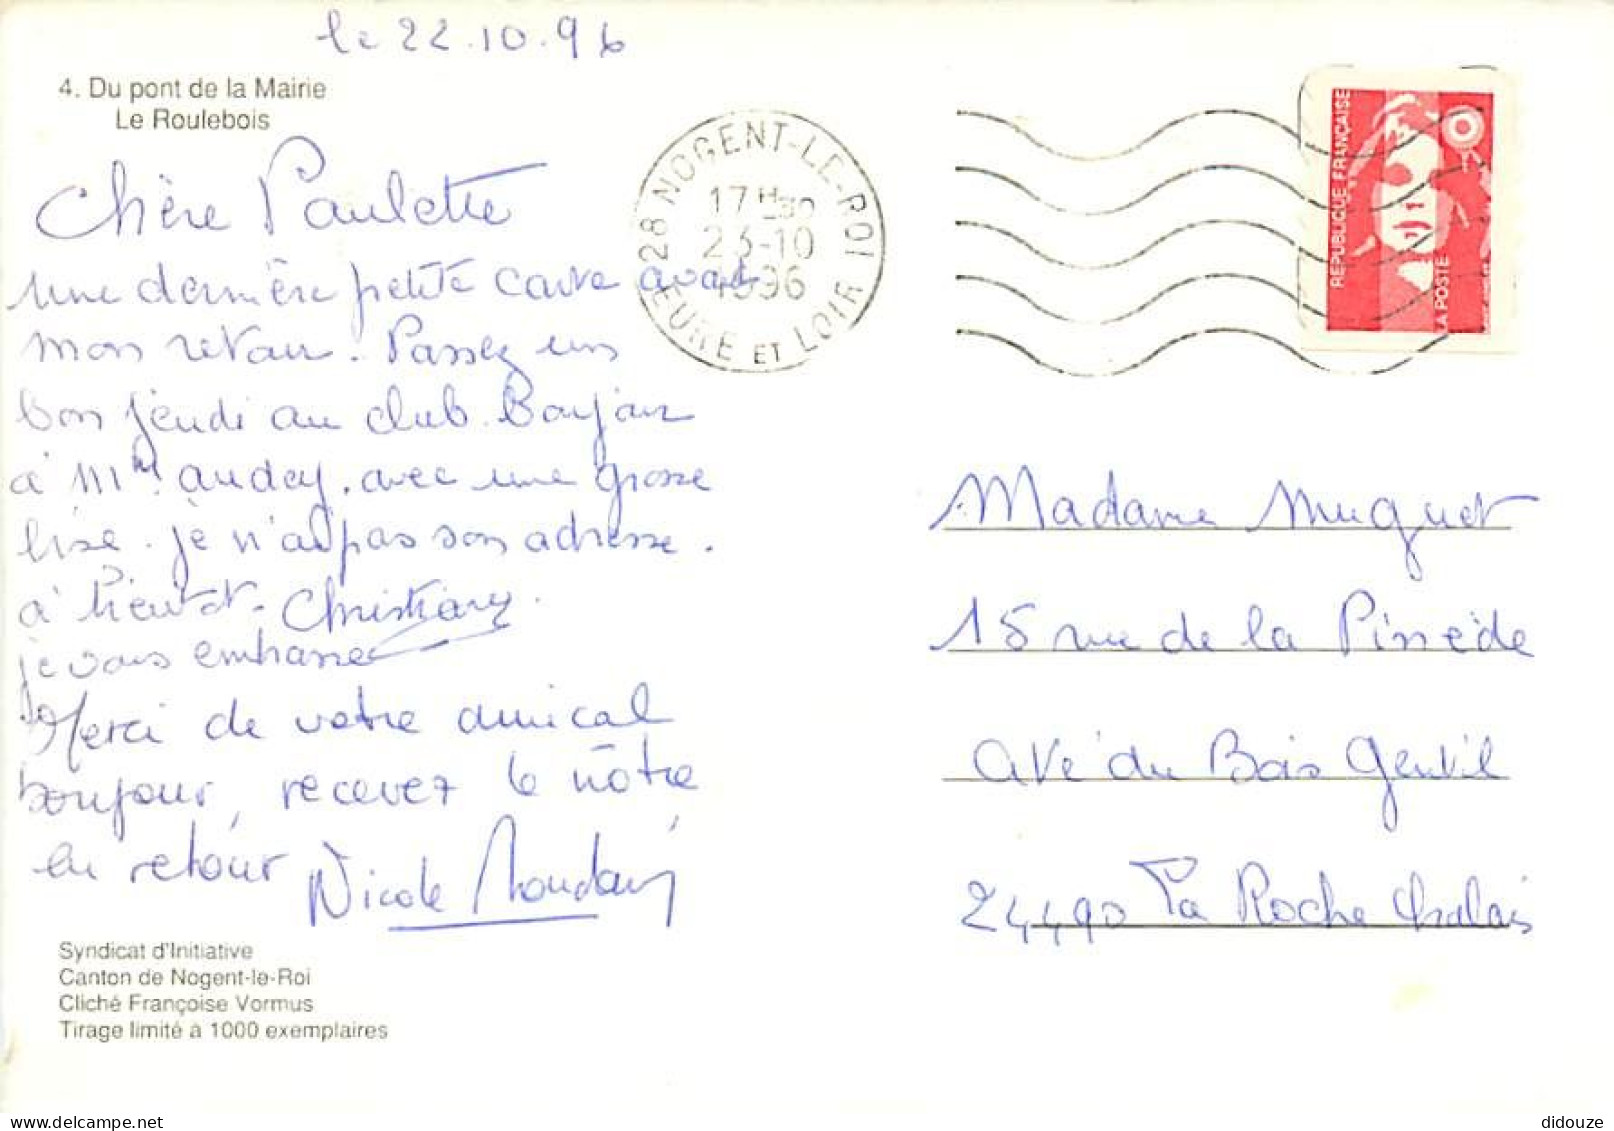 le 22.10.96
4. Du pont de la Mairie
Le Roulebois
Chère Paulette
une dernière petite carte avant
mon retour. Passez un
bon jeudi au club. Bonjour
à Mme audey. avec une grosse
bise. je n'ai pas son adresse.
à bientôt. Christiane.
je vous embrasse
Merci de votre amical
bonjour, recevez le nôtre
en retour Nicole
Syndicat d'Initiative
Canton de Nogent-le-Roi
Cliché Françoise Vormus
Tirage limité à 1000 exemplaires
28 NOGENT-LE-ROI
17H30
23-10
1996
EURE ET LOIR
REPUBLIQUE FRANÇAISE
LA POSTE
Madame Muguet
15 rue de la Pinède
ave du Bois Gentil
24490 La Roche Chalais
didouze